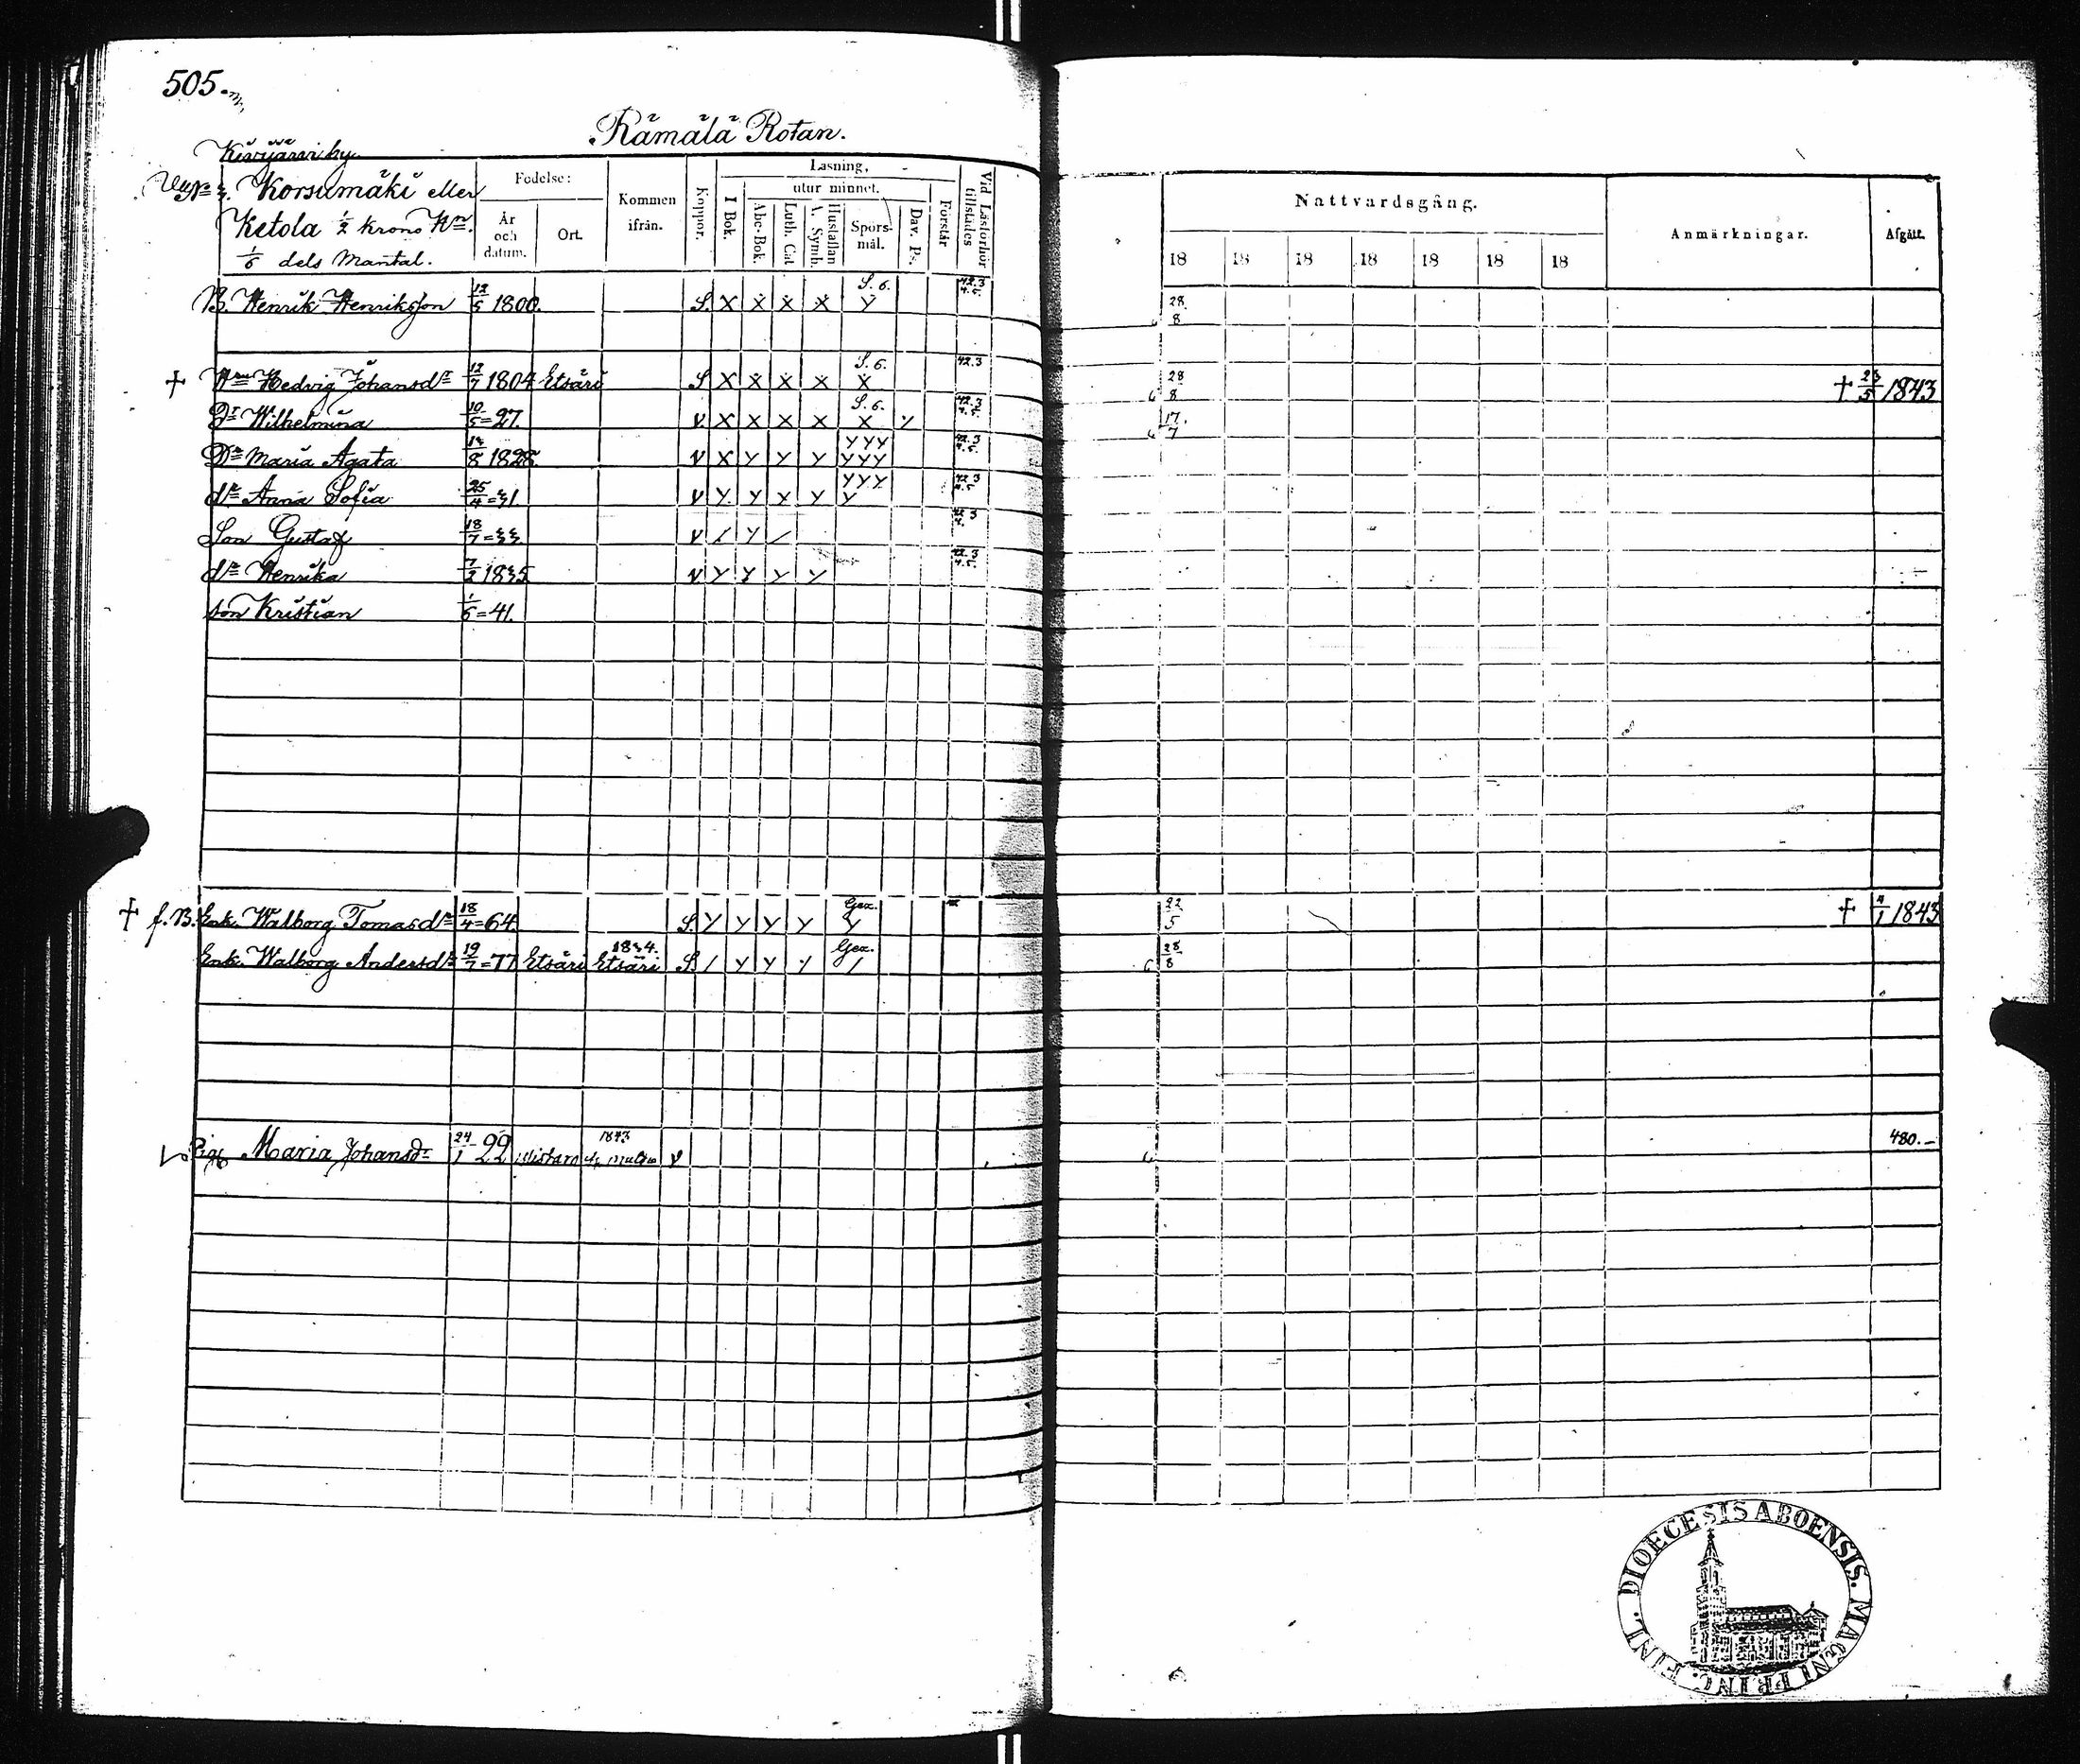 505.
Rämälä Rotan.
Kivijärvi by.
Korsumäki eller
Ketola 1/2 krono Hn.
1/6 dels Mantal.
Födelse:
År och datum.
Ort.
Kommen ifrån.
Koppor.
Läsning,
I Bok.
utur minnet.
Abc-Bok.
Luth. Cat.
Hustaflan A. Symb.
Spörs-mål.
Dav. Ps.
Förstår
Vid Läsförhör tillstädes
Nattvardsgång.
18 18 18 18 18 18 18
Anmärkningar.
Afgått.
B. Henrik Henriksson 12/5 1800. S. X X X X S. 6. Y 42.3 4.5. 28/8
† Hru Hedvig Johansdr 12/7 1804 Etsäri S X X X X S. 6. X 42.3 28/8 † 23/5 1843
Dr Wilhelmina 10/5 = 27. V X X X X S. 6. X Y 42.3 4.5. 17/7
Dr Maria Agata 14/8 1828. V X Y Y Y YYY YYY 42.3 4.5.
dr Anna Sofia 25/4 = 31. V Y Y X Y YYY Y 42.3 4.5
Son Gustaf 18/7 = 33. V / Y / 42 3 4.
dr Henrika 7/2 1835 V Y Y Y Y 42.3 4.5.
son Kristian 1/6 = 41.
† f. B. Enk. Walborg Tomasdr 18/4 = 64. S. Y Y Y Y Gez. Y 22/5 † 4/1 1843
Enk. Walborg Andersdr 19/7 = 77 Etsäri 1834. Etsäri S. / Y Y Y Gez. / 28/8
Pig. Maria Johansdr 24/1 22 1843 V 480.-
FINL. DIOECESIS ABOENSIS. MAGNI PRINC.